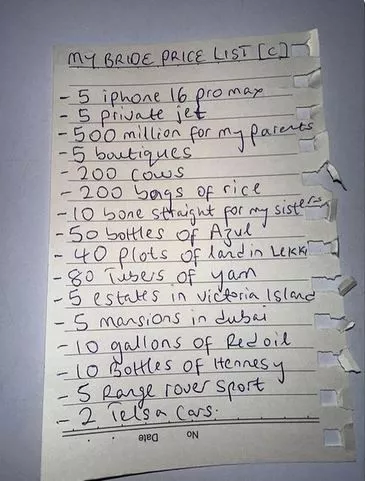 MY BRIDE PRICE LIST [C]
- 5 iphone 16 pro max
- 5 private jet
- 500 million for my parents
- 5 boutiques
- 200 cows
- 200 bags of rice
- 10 bone straight for my sisters
- 50 bottles of Azul
- 40 plots of land in Lekki
- 80 Tubers of yam
- 5 estates in Victoria Island
- 5 mansions in dubai
- 10 gallons of Red oil
- 10 Bottles of Hennesy
- 5 Range rover sport
- 2 Telsa Cars.
No Date